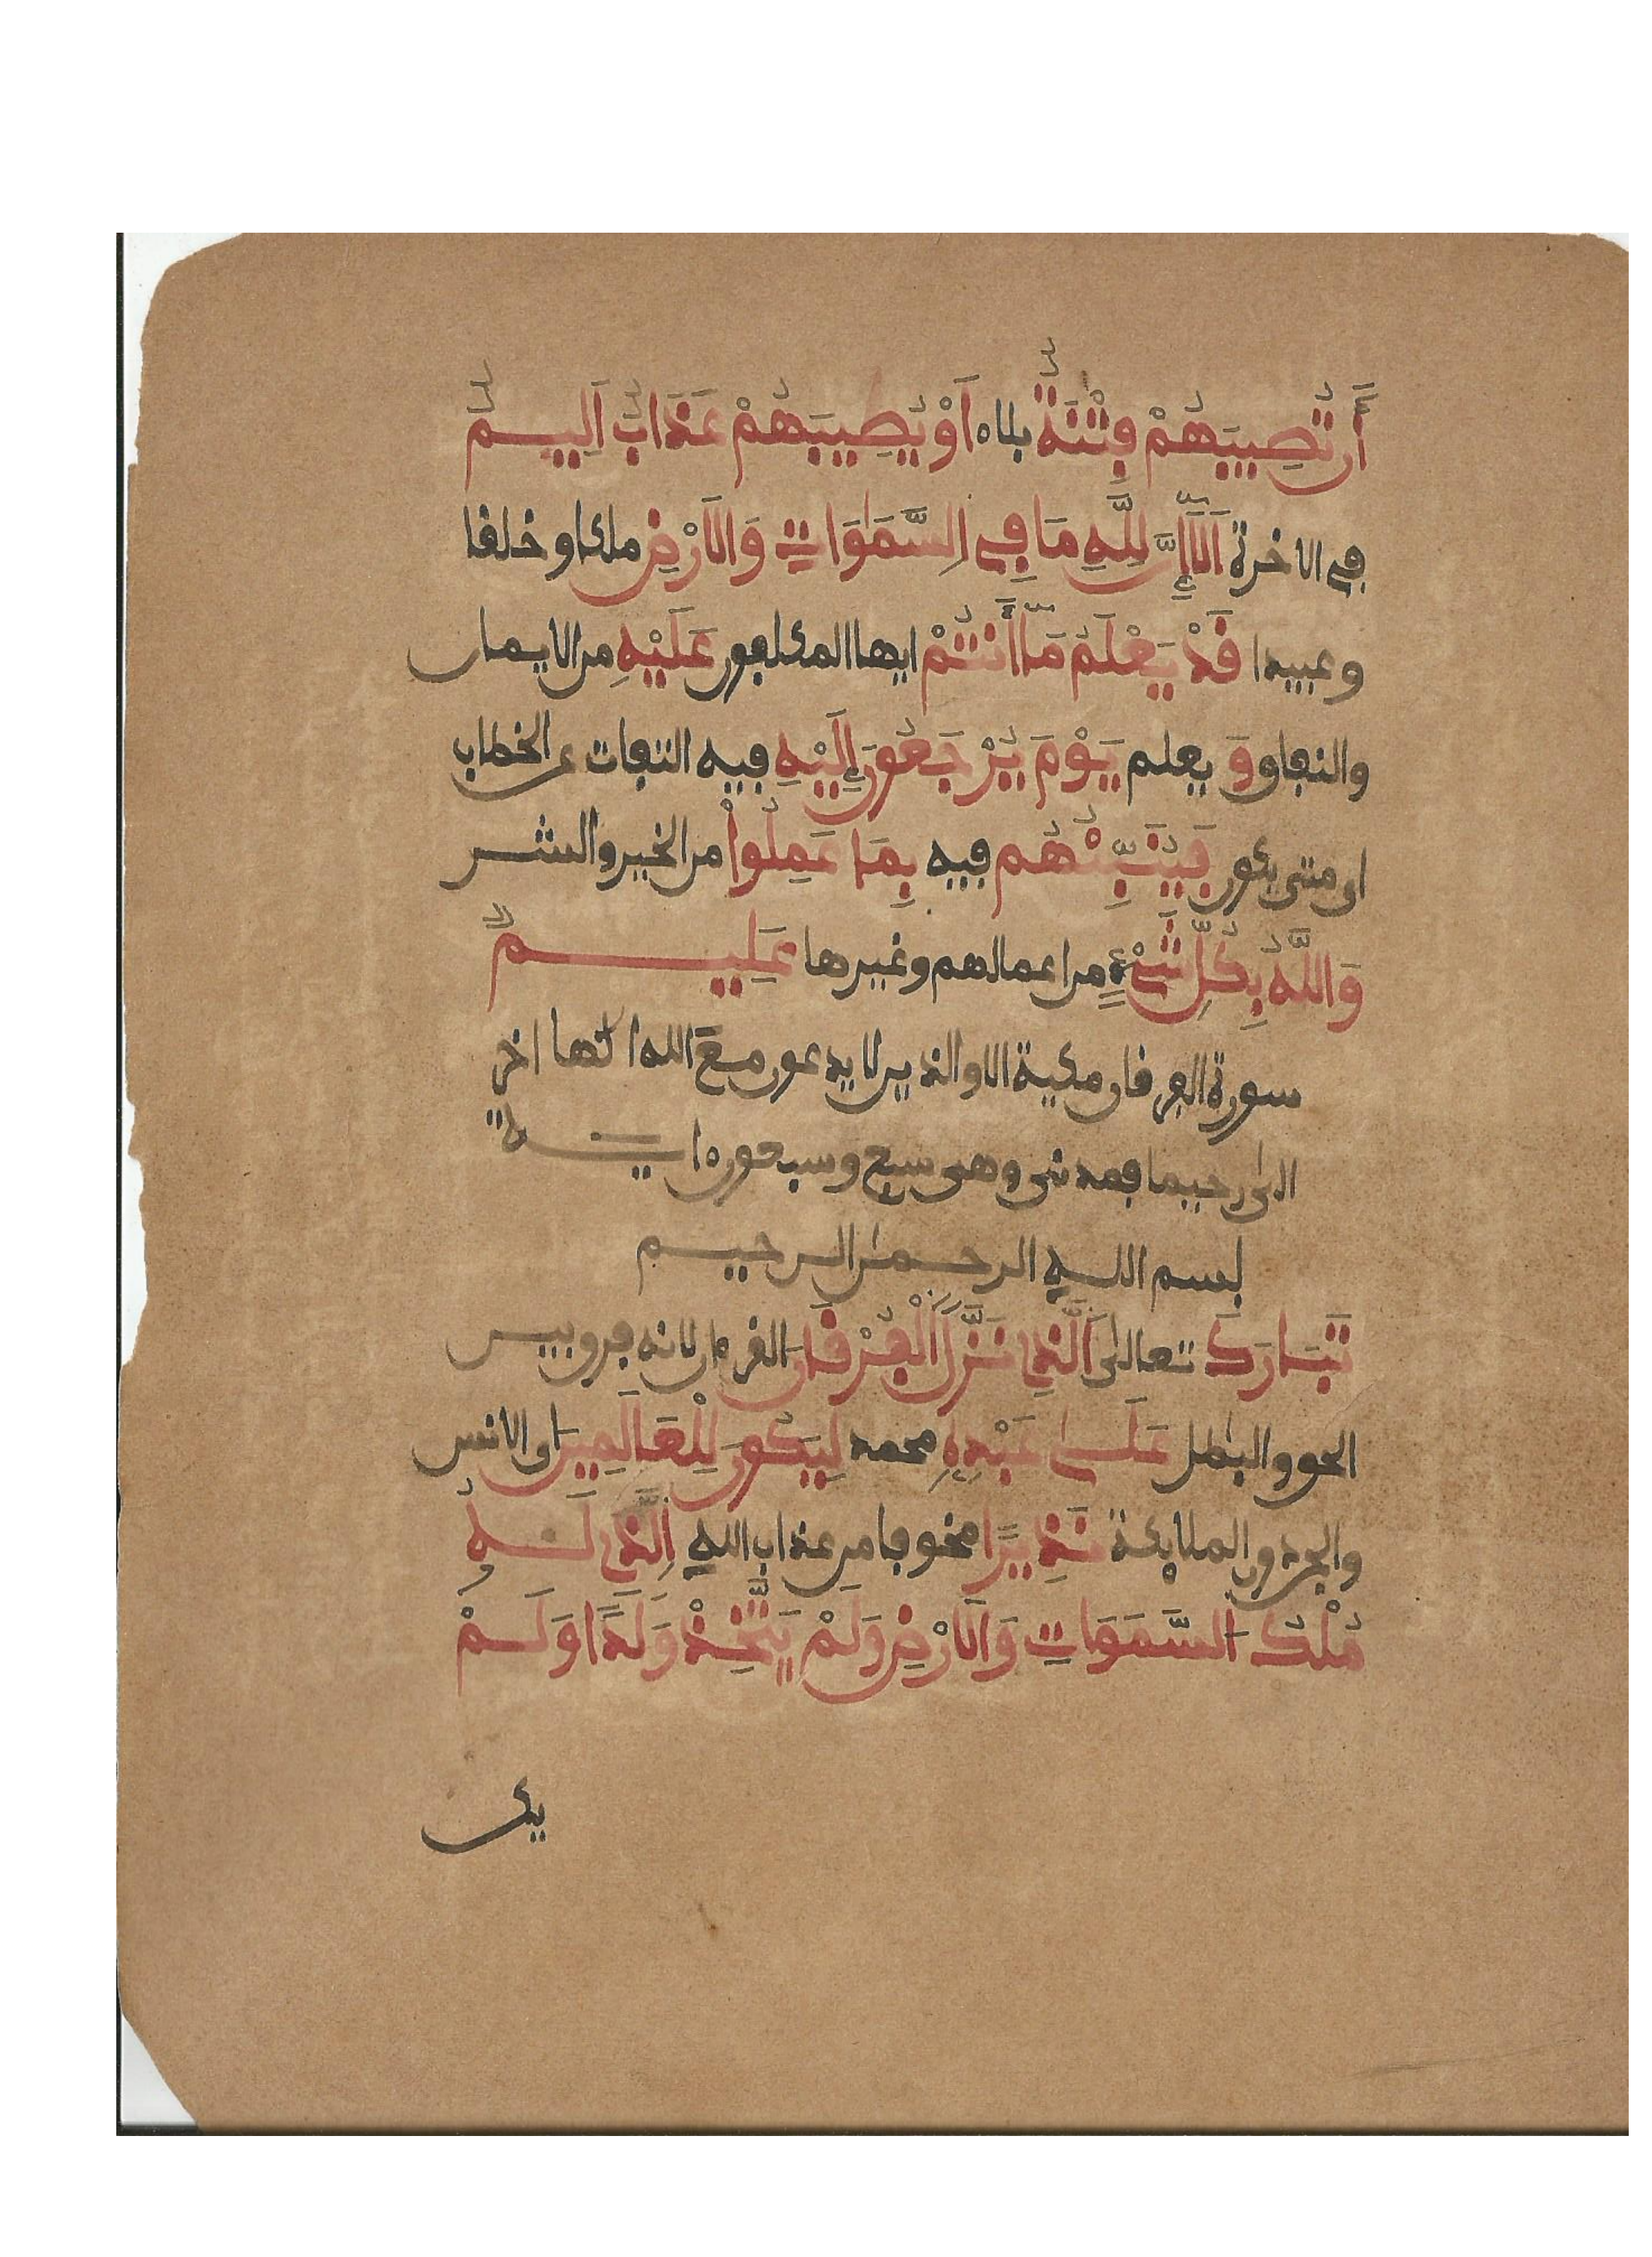 أَن تُصِيبَهُمْ فِتْنَةٌ بلاء أَوْ يُصِيبَهُمْ عَذَابٌ اَلِيمٌ
في الاخرة أَلَا إِنَّ لِلَّهِ مَا فِي اِلسَّمَٰوَاتِ وَالَارْضِ ملكا و خلفا
وعبيدا قَدْ يَعْلَمُ مَا أَنتُمْ ايها المكلفون عَلَيْهِ من الايمان
والنفاق وَ يعلم يَوْمَ يُرْجَعُونَ إِلَيْهِ فيه التفات عن الخطاب
اى متى يكون فَيُنَبِّئُهُم فيه بِمَا عَمِلُواْ من الخير والشر
وَاللَّهُ بِكُلِّ شَيْءٍ من اعمالهم وغيرها عَلِيمٌ
سورة الفرقان مكية الا والذين لا يدعون مع الله الها اخر
الى رحيما فمدنى وهى سبع وسبعون ءاية
بسم الله الرحمٰن الرحيم
تَبَارَكَ تعالى اَلَّذِي نَزَّلَ اَلْفُرْقَانَ القرءان لانه فرق بين
الحق والبٰطل عَلَىٰ عَبْدِهِ محمد لِيَكُونَ لِلْعَالَمِينَ اى الانس
والجن دون الملايكة نَذِيرًا مخوفا من عذاب الله اِلَّذِي لَهُ
مُلْكُ السَّمَٰوَاتِ وَالَارْضِ وَلَمْ يَتَّخِذْ وَلَدًا وَلَمْ
يكن